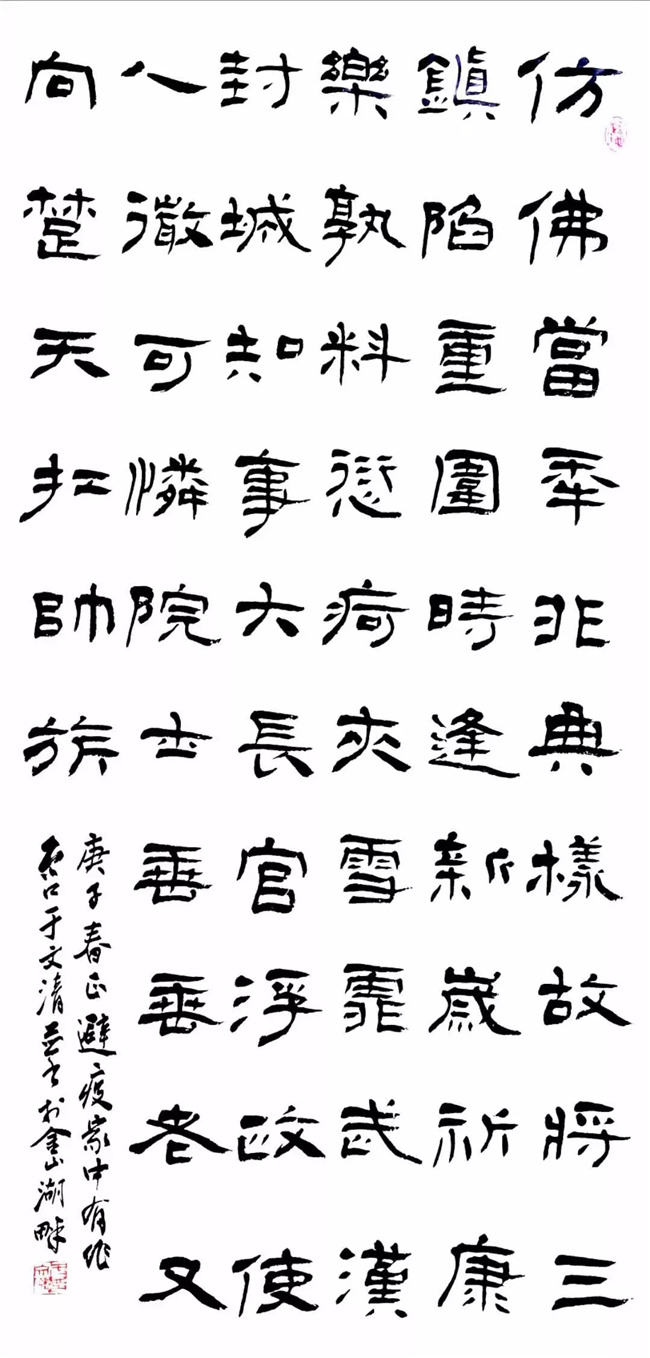 仿佛當年非典樣故將三
鎮陷重圍時逢新歲祈康
樂孰料愆疴夾雪霏武漢
封城知事大長官浮政使
人微可憐院士垂垂老又
向楚天扛帥旗
庚子春正避疫家中有作
京口于文清並書於金山湖畔